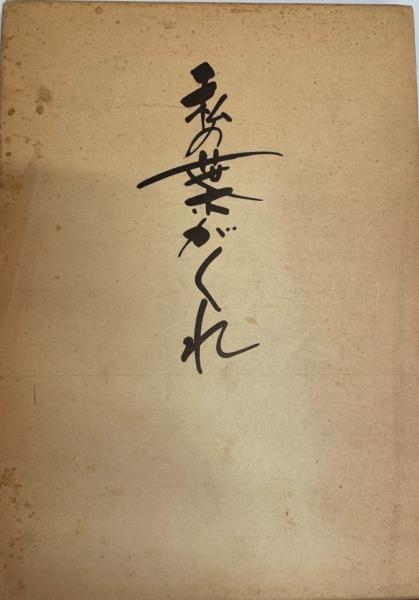 私の葉がくれ